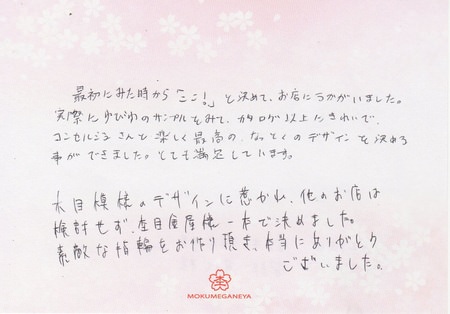 最初にみた時から「ここ!」と決めて、お店にうかがいました。
実際にゆびわのサンプルをみて、カタログ以上にきれいで、
コンセルジュさんと楽しく最高の、なっとくのデザインを決める
事ができました。とても満足しています。
木目模様のデザインに惹かれ、他のお店は
検討せず、杢目金屋様一本で決めました。
素敵な指輪をお作り頂き、本当にありがとう
ございました。
MOKUMEGANEYA